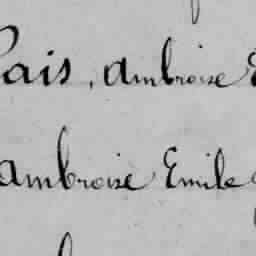 Pais, Ambroise
Ambroise Emile